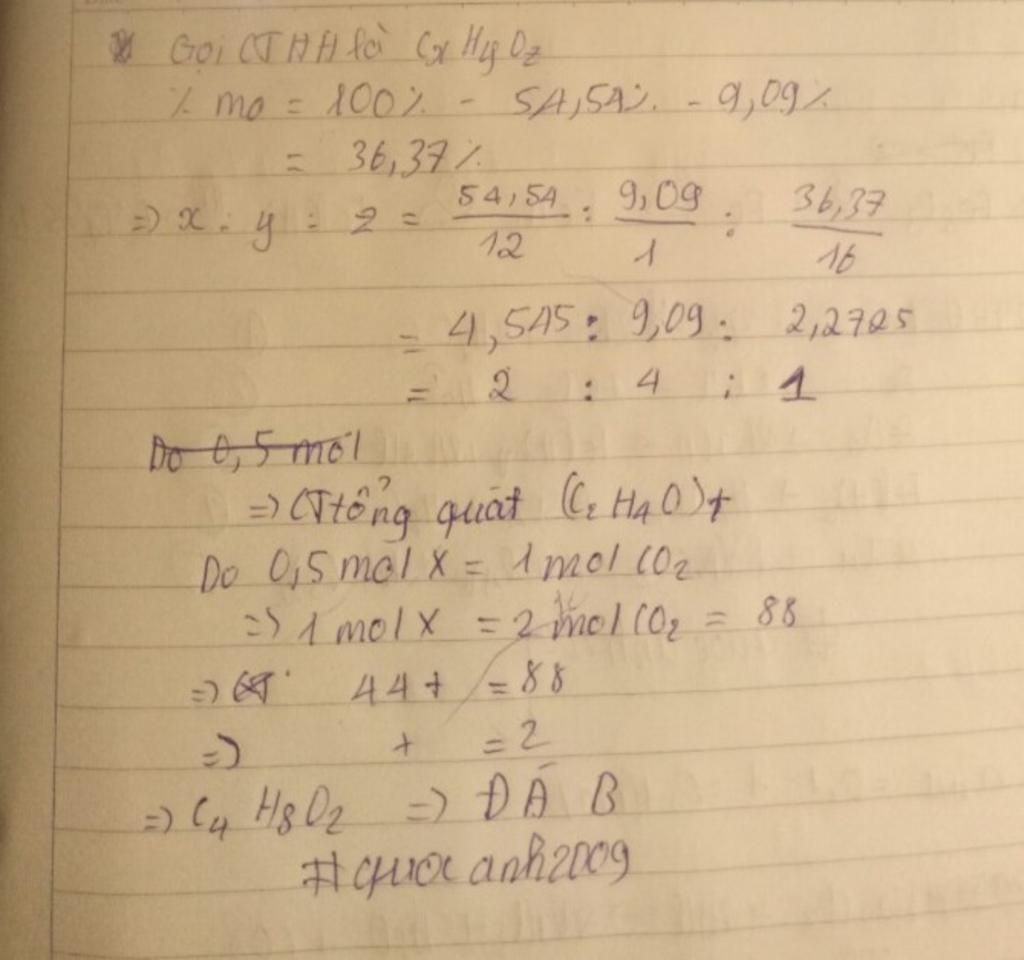 Gọi CTHH là CxHyOz
% mo = 100% - 54,54% - 9,09%
= 36,37%
=> x : y : z = 54,54/12 : 9,09/1 : 36,37/16
= 4,545 : 9,09 : 2,2725
= 2 : 4 : 1
Do 0,5 mol
=> CT tổng quát (C2H4O)t
Do 0,5 mol X = 1 mol CO2
=> 1 mol X = 2 mol CO2 = 88
=> 44t = 88
=> t = 2
=> C4H8O2 => ĐÁ B
#quocanh2009